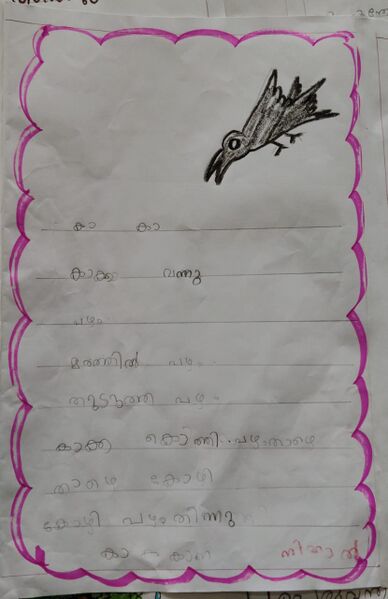 കാ കാ
കാക്ക വന്നു
പഴം
മരത്തിൽ പഴം
പഴം
കാക്ക കൊത്തി പഴം താഴെ
താഴെ കോഴി
കോഴി പഴം തിന്നു
കാ കാ
നിഹാൽ